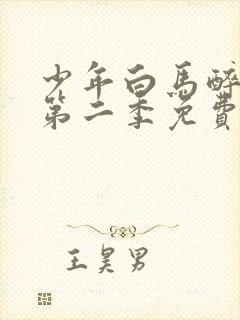 少年白馬醉
第二季免費
王昊男